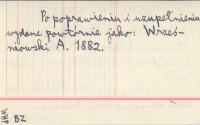 Po poprawieniu i uzupełnieniu
wydane powtórnie jako: Wrześ-
niowski A. 1882.
WHP BZ